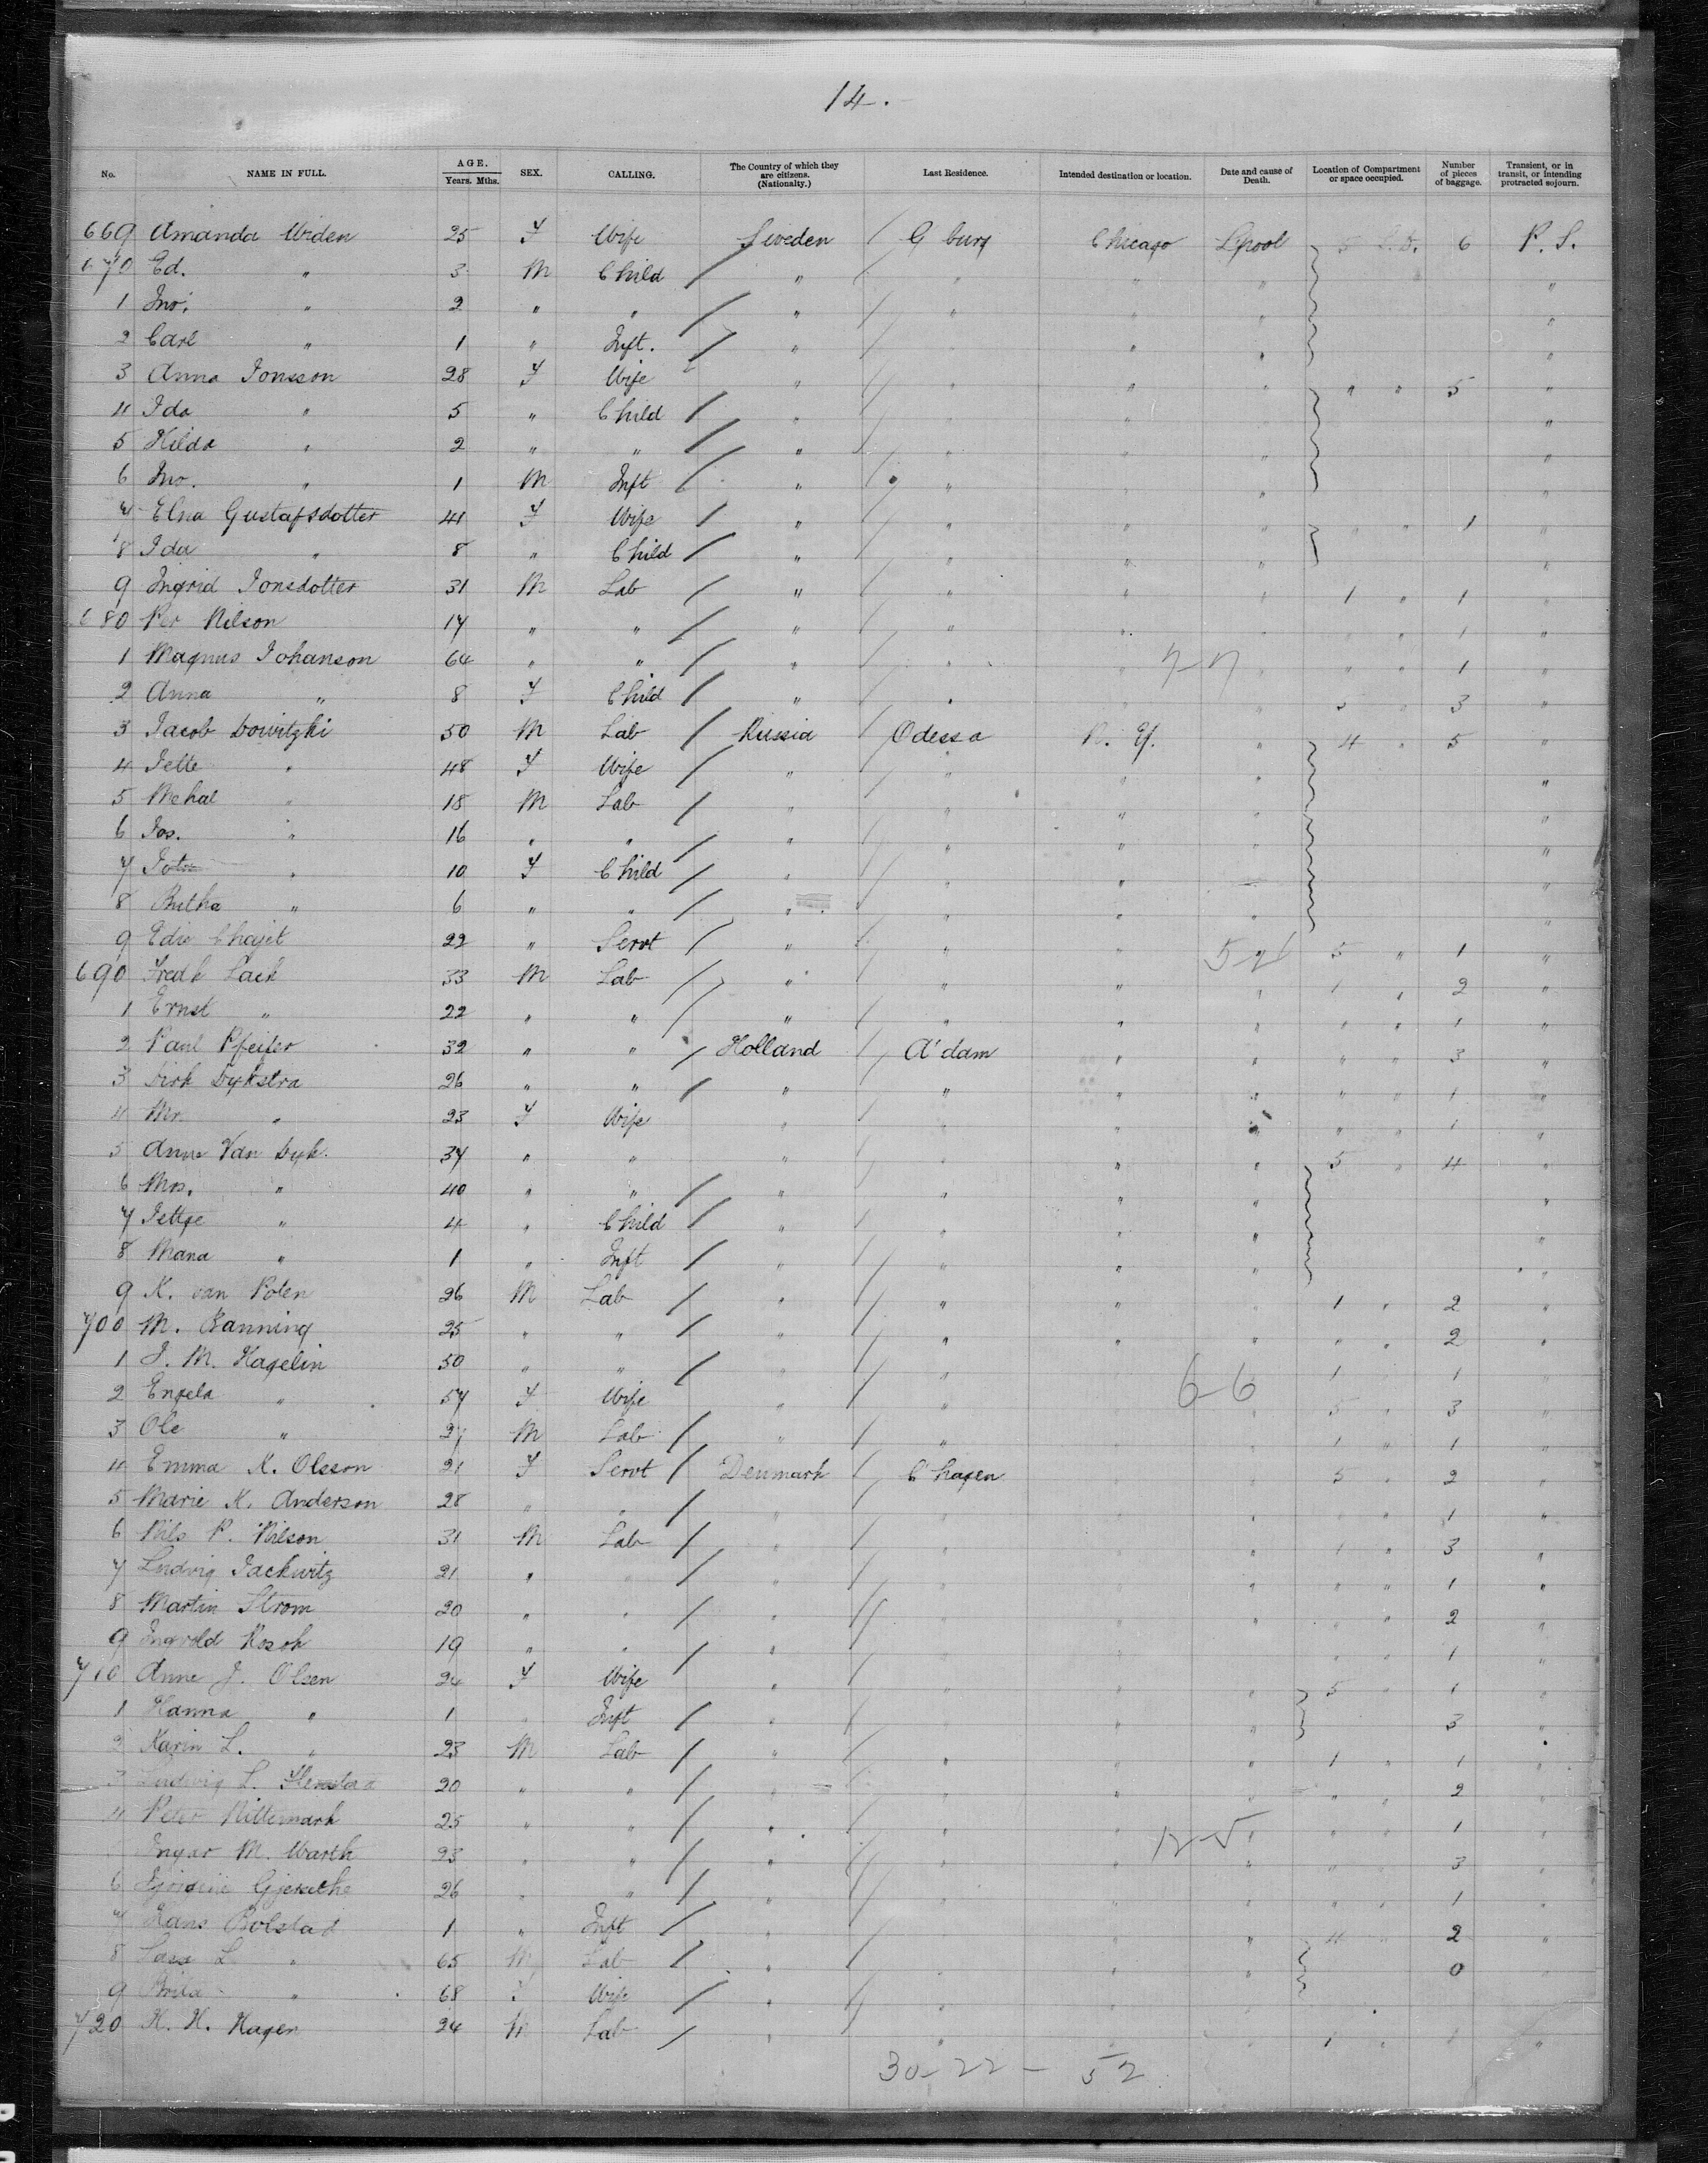 14.
No. NAME IN FULL. AGE. Years. Mths. SEX. CALLING. The Country of which they are citizens. (Nationality.) Last Residence. Intended destination or location. Date and cause of Death. Location of Compartment or space occupied. Number of pieces of baggage. Transient, or in transit, or intending protracted sojourn.
669 Amanda Widen 25 F Wife Sweden G burg Chicago Lpool 5 6 P. S.
670 Ed. " 3 M Child " " " " "
1 Jno. " 2 " " " " " " "
2 Carl " 1 " Inft. " " " "
3 Anna Jonsson 28 F Wife " " " " " " 5 "
4 Ida " 5 " Child " " " " "
5 Hilda " 2 " " " " " " "
6 Jno. " 1 M Inft " " " " "
7 Elna Gustafsdotter 41 F Wife " " " " " " 1 "
8 Ida " 8 " Child " " " " "
9 Ingrid Jonsdotter 31 M Lab " " " " 1 " 1 "
680 Per Nilson 17 " " " " " " " " 1 "
1 Magnus Johanson 64 " " " " " " " " 1 "
2 Anna " 8 F Child " " " " 5 " 3 "
3 Jacob Dowitzki 50 M Lab Russia Odessa N. Y. " 4 " 5 "
4 Jette " 48 F Wife " " " " "
5 Mchal " 18 M Lab " " " " "
6 Jos. " 16 " " " " " " "
7 " 10 F Child " " " "
8 " 6 " " " " " " "
9 22 " Servt " " " 5 " 1 "
690 Fredk Lack 33 M Lab " " " " 1 " 2 "
1 Ernst " 22 " " " " " " " " 1 "
2 Paul Pfeifer 32 " " Holland A'dam " " " " 3 "
3 Dirk Dykstra 26 " " " " " " " " 1 "
4 " 23 F Wife " " " " " " 1 "
5 Anna Van Dyk. 37 " " " " " " 5 " 4 "
6 Mrs. " 40 " " " " " " "
7 Jettje " 4 " Child " " " " "
8 Mana " 1 " Inft " " " " "
9 K. van Polen 26 M Lab " " " " 1 " 2 "
700 M. Banning 25 " " " " " " " " 2 "
1 J. M. Hagelin 50 " " " " 1 1 "
6-6
2 Engela " 57 F Wife " " " 5 " 3 "
3 Ole " M Lab " " " 1 " 1 "
4 Emma K. Olsson 21 F Servt Denmark C'hagen 5 " 2 "
5 Marie K. Anderson 28 " " " " " " " 1 "
6 Nils P. Nilson 31 M Lab " " " " 1 " 3 "
7 Ludvig Jackwitz 21 " " " " " " " " 1 "
8 Martin Strom 20 " " " " " " " " 2 "
9 19 " " " " " " " " 1 "
710 Anne J. Olsen 24 F Wife " " " " 5 " 1 "
1 Hanna " 1 " Inft " " " 3 "
2 Karin L. " 23 M Lab " " " " 1 " 1 "
3 Ludwig L. 20 " " " " " " " " 2 "
4 Peter Nittemark 25 " " " " " " " 1 "
Ingar M. Warth 23 " " " " " " " 3 "
6 26 " " " " " " " " 1 "
7 Hans Bolstad 1 " Inft " " " 4 " 2 "
8 " 65 M Lab " " " 0
9 " 68 F Wife " " " "
720 K. K. Hagen 24 M Lab " " " " 1 " "
30-22- 52